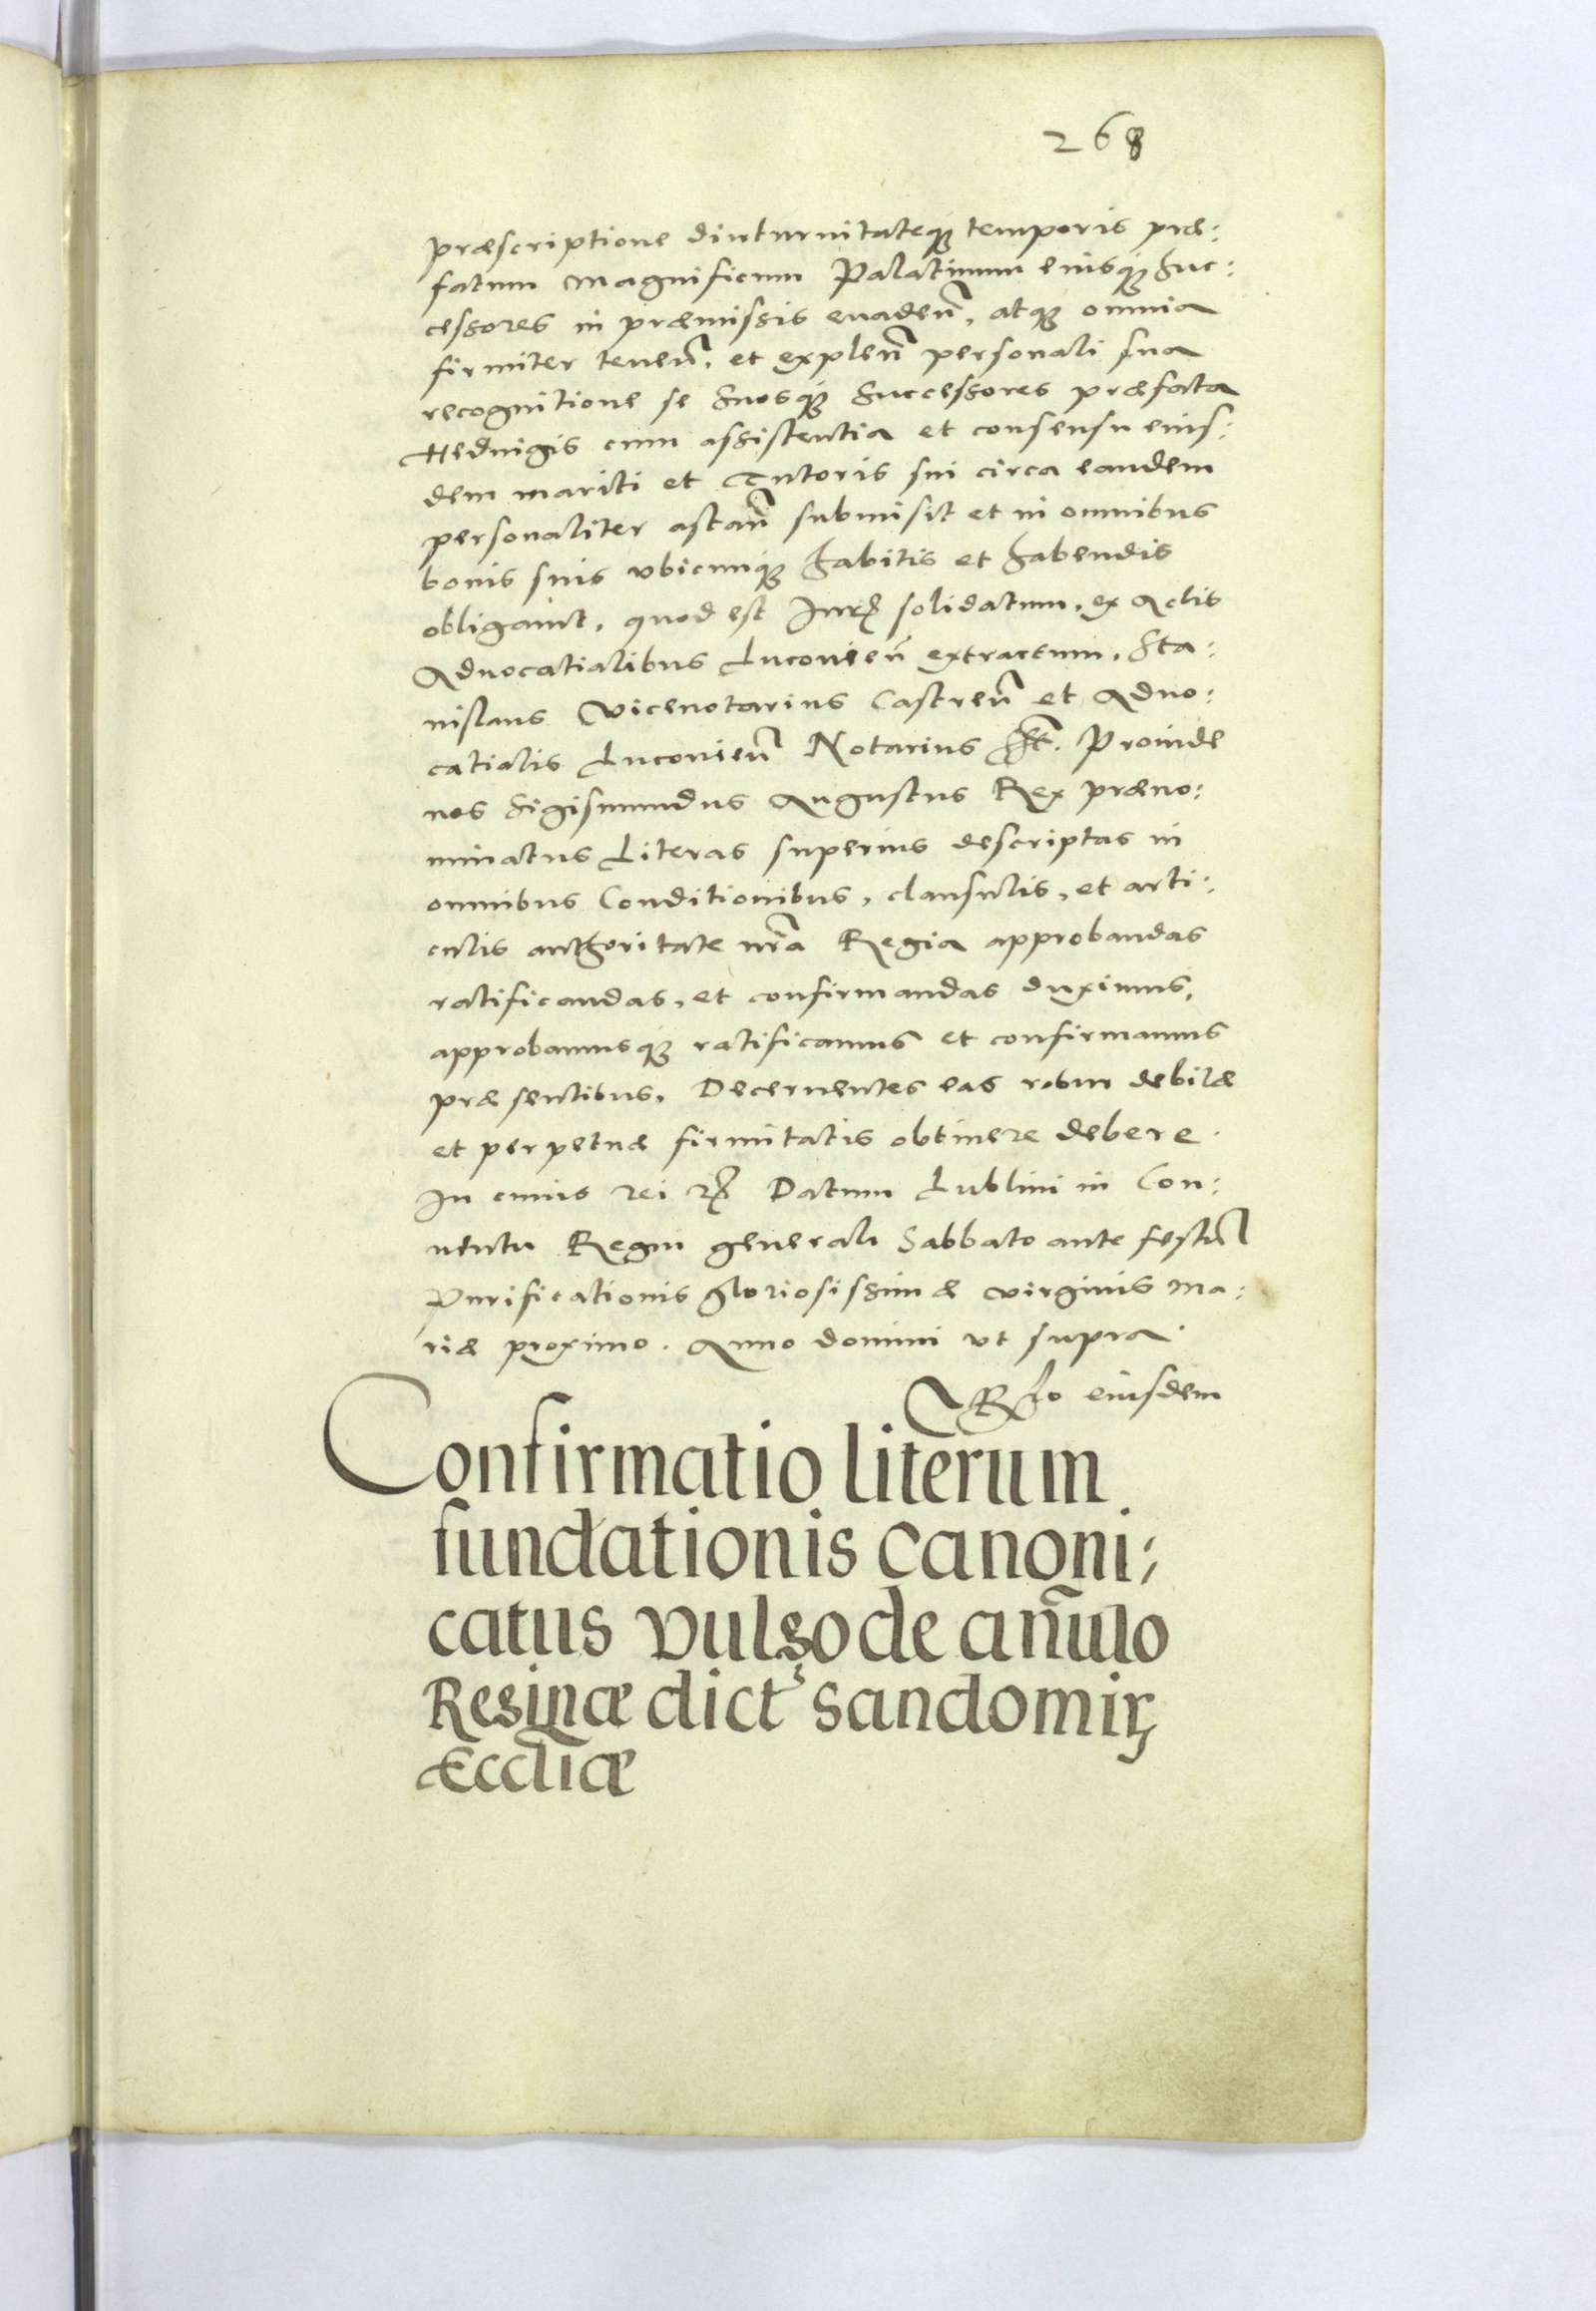 268
præscriptione diuturnitateq₃ temporis præ:
fatum Magnificum Palatinum eiusq₃ Suc:
cessores in præmissis euadeñ, atq₃ omnia
firmiter teneñ, et expleñ personali sua
recognitione se Suosq₃ Successores præfata
Heduigis cum assistentia et consensu eius:
dem mariti et Tutoris sui circa eandem
personaliter astañ submisit et in omnibus
bonis suis vbicunq₃ habitis et habendis
obligauit, quod est solidatum, ex Actis
Aduocatialibus Lucouieñ extractum, Sta:
nislaus Vicenotarius Castreñ et Aduo:
catialis Lucouieñ Notarius Proinde
nos Sigismundus Augustus Rex præno:
minatus Literas superius descriptas in
omnibus Conditionibus, clausulis, et arti:
culis authoritate nrã Regia approbandas
ratificandas, et confirmandas duximus,
approbamusq₃ ratificamus et confirmamus
præsentibus, Decernentes eas robur debitæ
et perpetuæ firmitatis obtinere debere.
In cuius rei Datum Lublini in Con:
uentu Regni generali Sabbato ante festũ
Purificationis gloriosissimæ virginis Ma:
riæ proximo. Anno domini vt supra.
Rło eiusdem
Confirmatio literum
fundationis Canoni:
catus vulgo de anũlo
Reginæ dict sandomir
Eccliæ